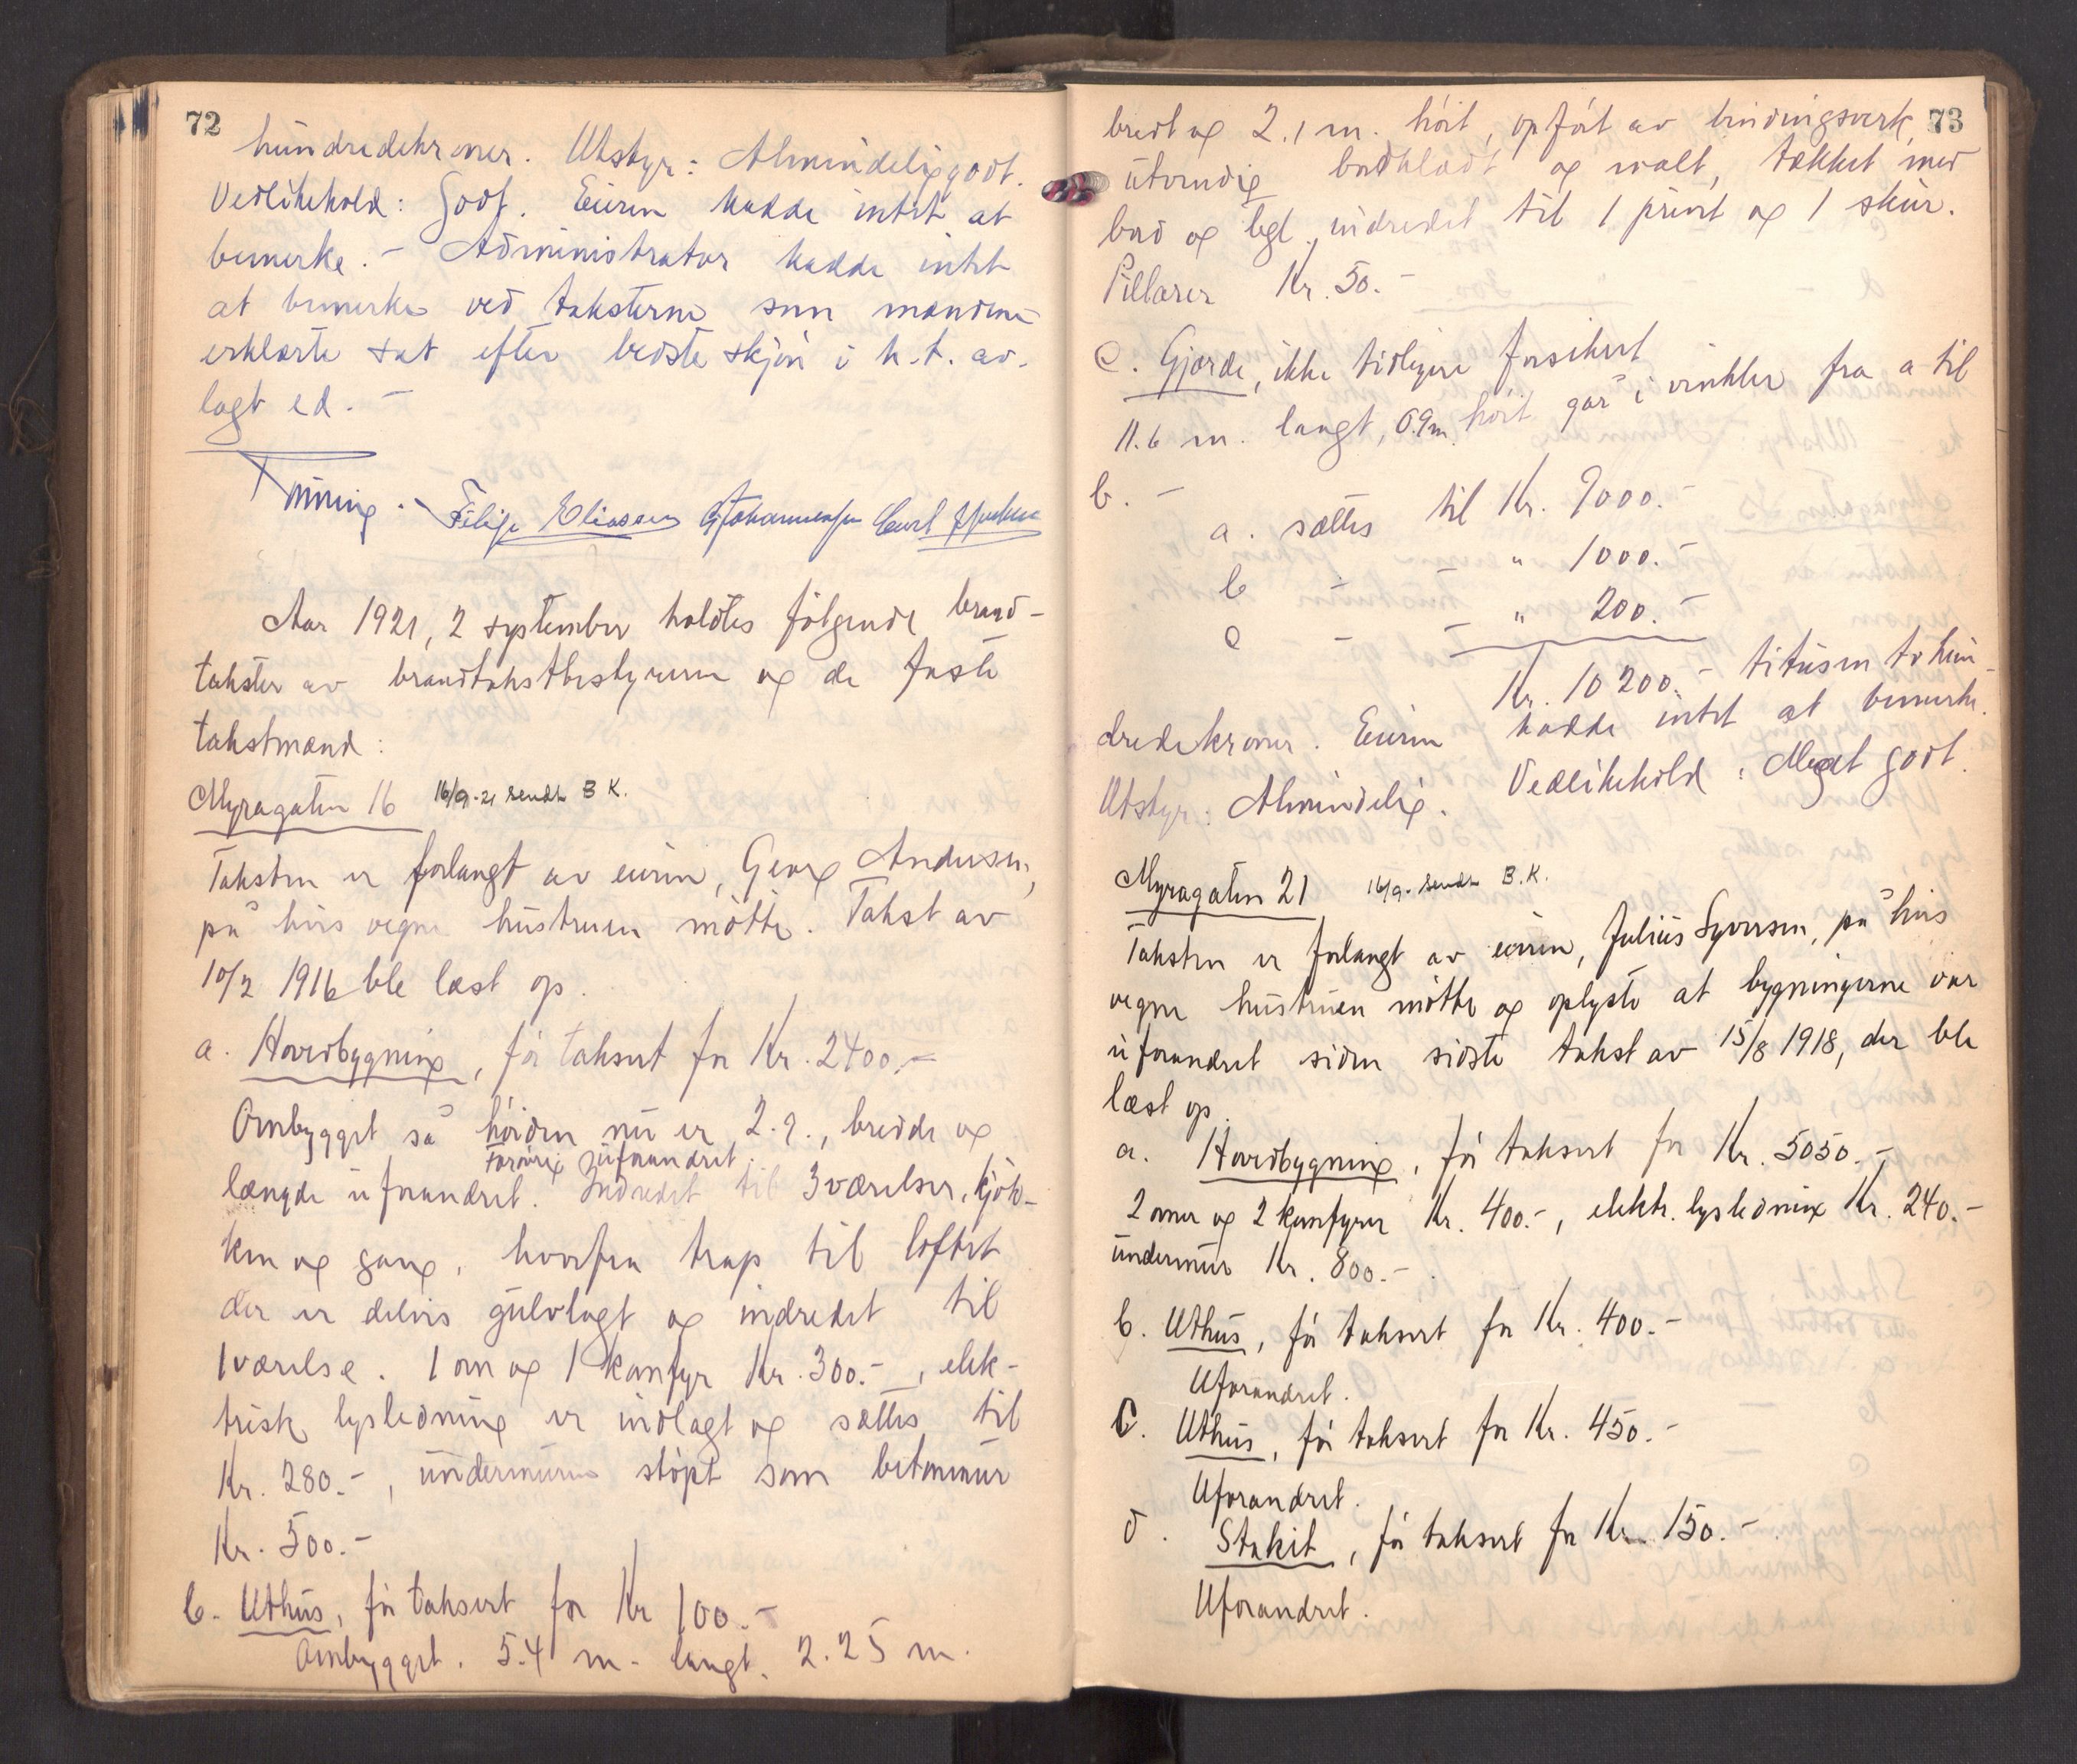 72
hundredekroner. Utstyr: Almindelig godt.
Vedlikehold: Godt. Eieren hadde intet at
bemerke. - Administrator hadde intet
at bemerke ved taksterne som mændene
erklærte sat efter bedste skjøn i h.t. av-
lagt ed. -
Filip Eliassen G Johannessen Carl
Aar 1921, 2 september holdtes følgende brand-
takster av brandtakstbestyreren og de faste
takstmænd:
Myragaten 16 16/9-21 sendt B K.
Taksten er forlangt av eieren, Georg Andersen,
på hvis vegne hustruen møtte. Takst av
10/2 1916 ble læst op.
a. Hovedbygning, før taksert for Kr. 2400.-
Ombygget så høiden nu er 2.9., bredde og
forøvrig uforandret.
længde uforandret. Indredet til 3 værelser, kjøk-
ken og gang, hvorfra trap til loftet
der er delvis gulvlagt og indredet til
1 værelse. 1 ovn og 1 komfyr Kr. 300.-, elek-
trisk lysledning er indlagt og sættes til
Kr. 280.-, undermuren støpt som betonmur
Kr. 500.-
b. Uthus, før taksert for Kr 100.-
Ombygget. 5.4 m. langt. 2.25 m.
73
bredt og 2.1 m. høit, opført av bindingsverk,
utvendig bordklædt og malt, tækket med
bord og tegl, indredet til 1 privet og 1 skur.
Pillarer Kr. 50.-
c. Gjærde, ikke tidligere forsikret
11.6 m. langt, 0.9 m. høit går i vinkler fra a til
b. -
a. sættes til Kr. 9000.-
b - " 1000.-
c - - " 200.-
Kr. 10 200.- titusen to hun-
dredekroner. Eieren hadde intet at bemerke.
Utstyr: Almindelig. Vedlikehold: Meget godt.
Myragaten 21 16/9- sendt B.K.
Taksten er forlangt av eieren, Julius Syversen, på hvis
vegne hustruen møtte og oplyste at bygningerne var
uforandret siden sidste takst av 15/8 1918, der ble
læst op.
a. Hovedbygning, før taksert for Kr. 5050.-
2 ovner og 2 komfyrer Kr. 400.-, elektr. lysledning Kr. 240.-
undermur Kr. 800.-
b. Uthus, før taksert for Kr. 400.-
Uforandret.
c. Uthus, før taksert for Kr. 450.-
Uforandret.
d. Stakit, før taksert for Kr. 150.-
Uforandret.